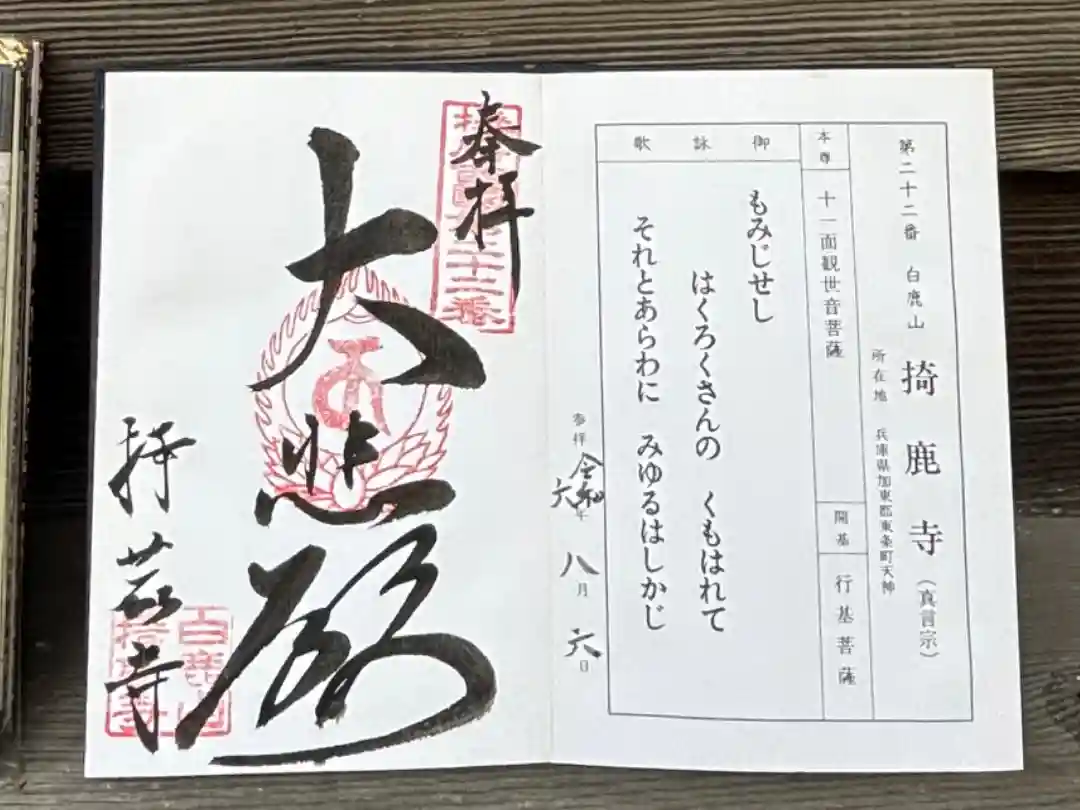 第二十二番 白鹿山 掎鹿寺(真言宗)
所在地 兵庫県加東郡東条町天神
本尊 十一面観世音菩薩
開基 行基菩薩
御詠歌
もみじせし
はくろくさんの くもはれて
それとあらわに みゆるはしかじ
参拝 令和六年 八月 六日
奉拝
大悲殿
白鹿山